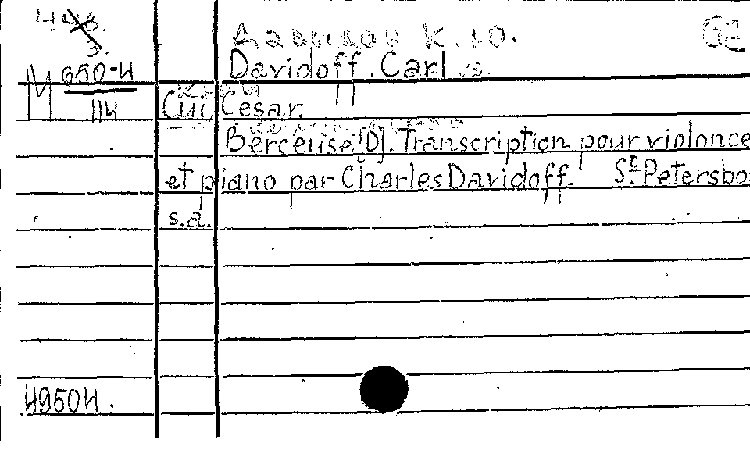 Давидов К. Ю.
Davidoff. Carl
M 950-4
114
Cui Cesar.
Berceuse. [D]. Transcription pour violonce
et piano par Charles Davidoff. St. Petersbo
s.a.
49504.